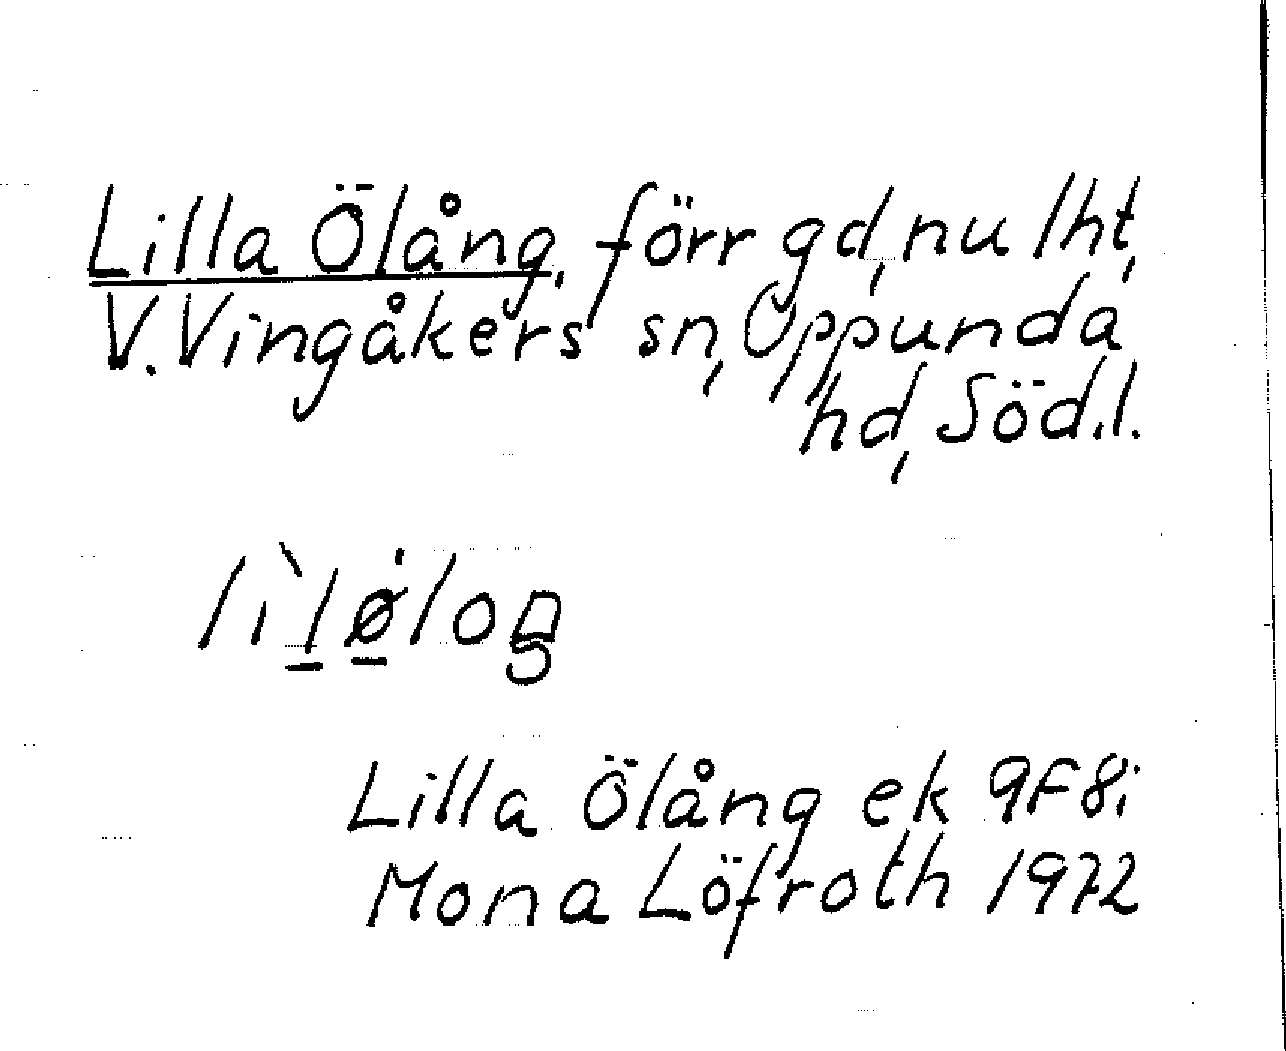 Lilla Ölång, förr gd, nu lht,
V. Vingåkers sn, Oppunda
hd, Söd.l.
lìl̲ø̲̍loŋ
Lilla Ölång ek 9F8i
Mona Löfroth 1972